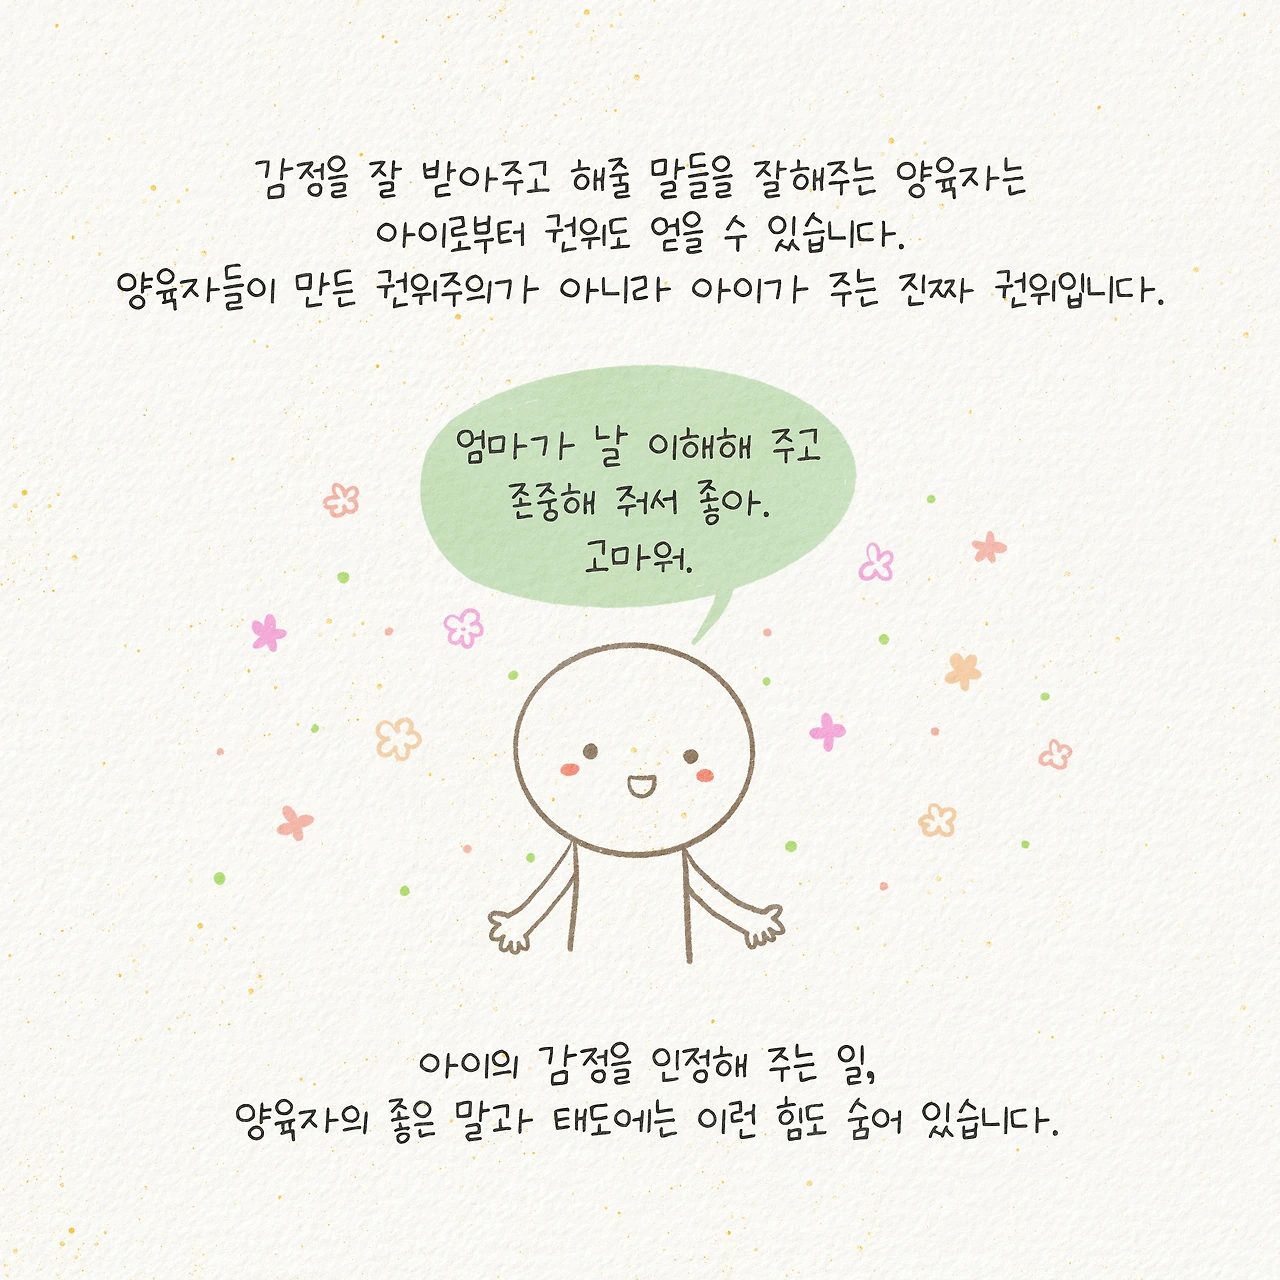 감정을 잘 받아주고 해줄 말들을 잘해주는 양육자는
아이로부터 권위도 얻을 수 있습니다.
양육자들이 만든 권위주의가 아니라 아이가 주는 진짜 권위입니다.
엄마가 날 이해해 주고
존중해 줘서 좋아.
고마워.
아이의 감정을 인정해 주는 일,
양육자의 좋은 말과 태도에는 이런 힘도 숨어 있습니다.